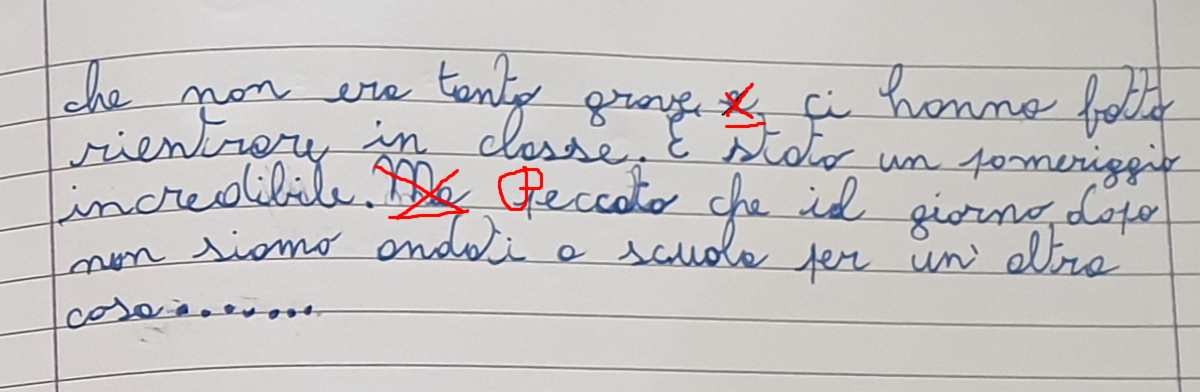 che non era tanto grave e, ci hanno fatto
rientrare in classe. È stato un pomeriggio
incredibile. Ma Peccato che il giorno dopo
non siamo andati a scuola per un' altra
cosa........